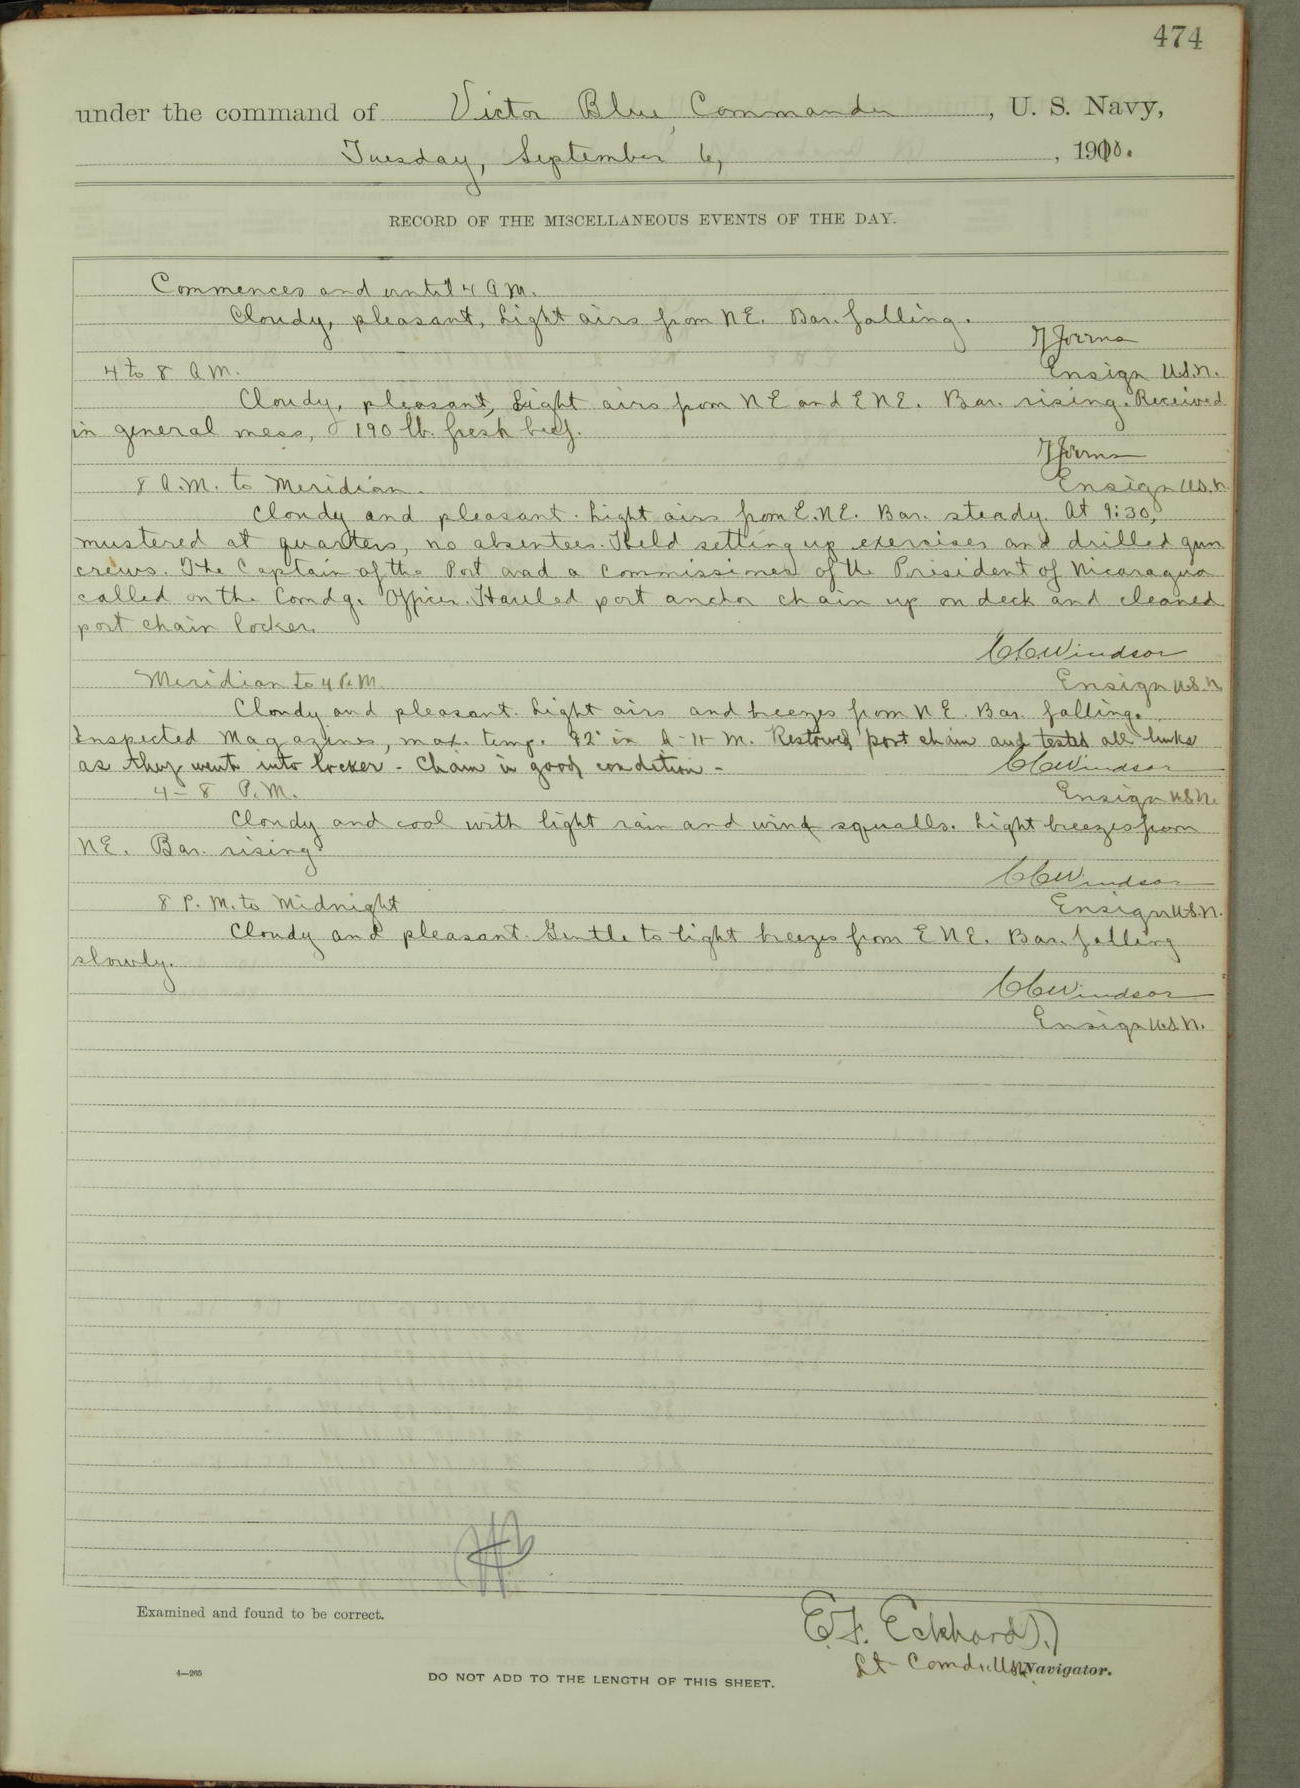 474
under the command of Victor Blue, Commander, U. S. Navy,
Tuesday, September 6, , 1910.
RECORD OF THE MISCELLANEOUS EVENTS OF THE DAY.
Commences and until 4 A.M.
Cloudy, pleasant, Light airs from NE. Bar. falling.
Ensign U.S.N.
4 to 8 A.M.
Cloudy, pleasant, Light airs from NE and ENE. Bar. rising. Received
in general mess, 190 lb. fresh beef.
Ensign U.S.N.
8 A.M. to Meridian.
Cloudy and pleasant. Light airs from E.N.E. Bar. steady. At 9:30,
mustered at quarters, no absentees. Held setting up exercises and drilled gun
crews. The Captain of the Port and a Commissioner of the President of Nicaragua
called on the Comdg. Officer. Hauled port anchor chain up on deck and cleaned
port chain locker.
CCWindsor
Ensign U.S.N.
Meridian to 4 P.M.
Cloudy and pleasant. Light airs and breezes from NE. Bar. falling.
Inspected Magazines, max. temp. 92° in A-11-M. Restowed port chain and tested all links
as they went into locker - Chain in good condition -
CCWindsor
Ensign U.S.N.
4 - 8 P.M.
Cloudy and cool with light rain and wind squalls. Light breezes from
NE. Bar. rising.
CCWindsor
Ensign U.S.N.
8 P.M. to Midnight
Cloudy and pleasant. Gentle to light breezes from ENE. Bar. falling
slowly.
CCWindsor
Ensign U.S.N.
Examined and found to be correct.
E.F. Eckhardt
Lt-Comdr. U.S.N. Navigator.
4—265
DO NOT ADD TO THE LENGTH OF THIS SHEET.